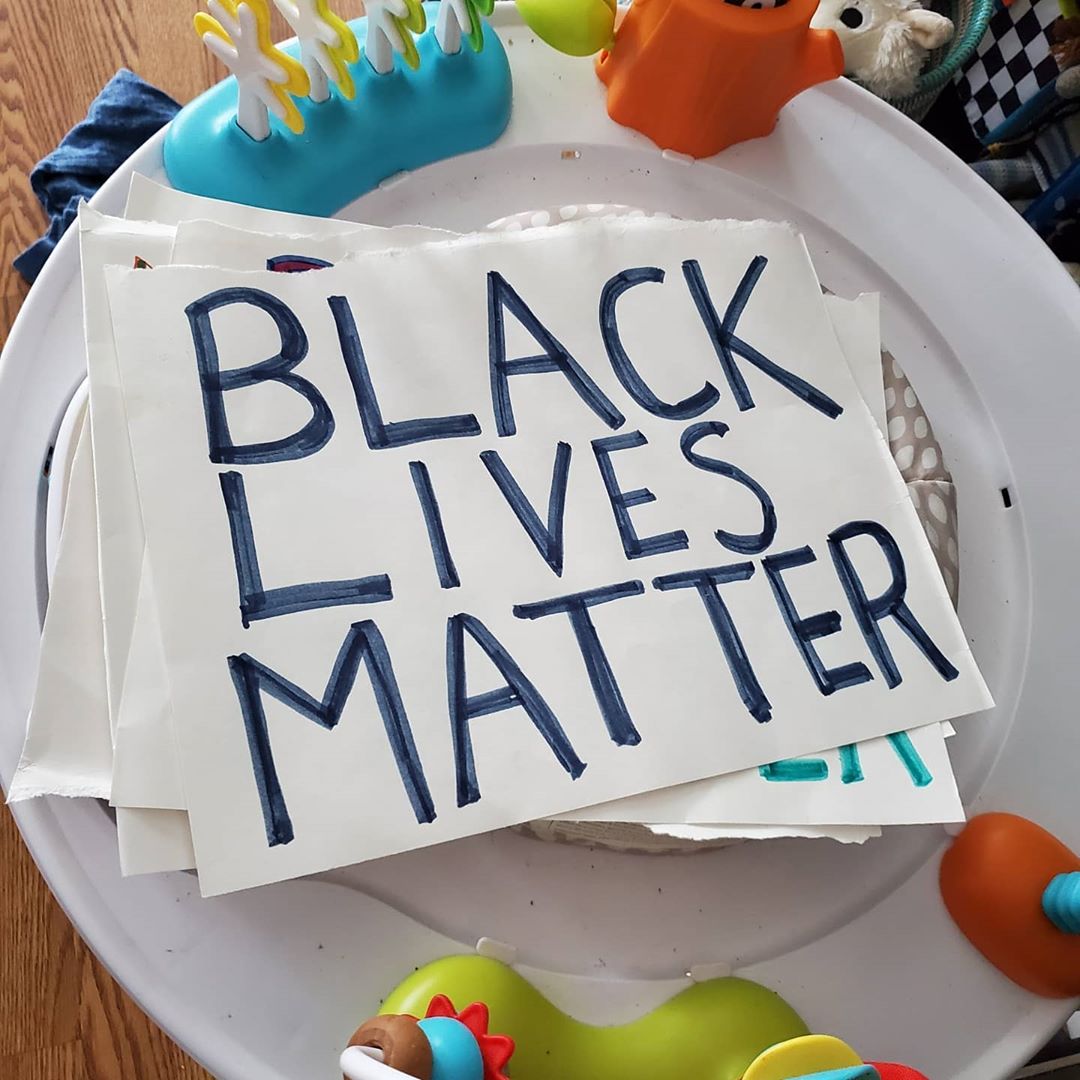 BLACK
LIVES
MATTER
ER